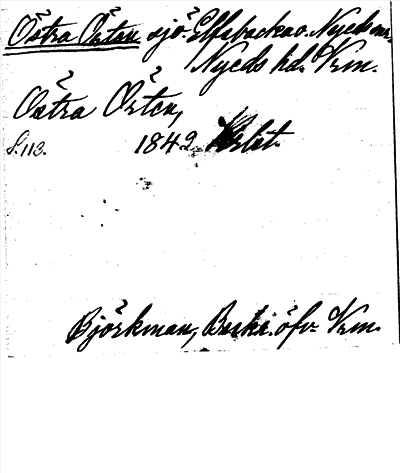 Östra Örten sjö Elfsbacka o. Nyeds snr
Nyeds hd. Vrm.
Östra Örten,
S. 113. 1842
Björkman, Beskr. öfv. Vrm.